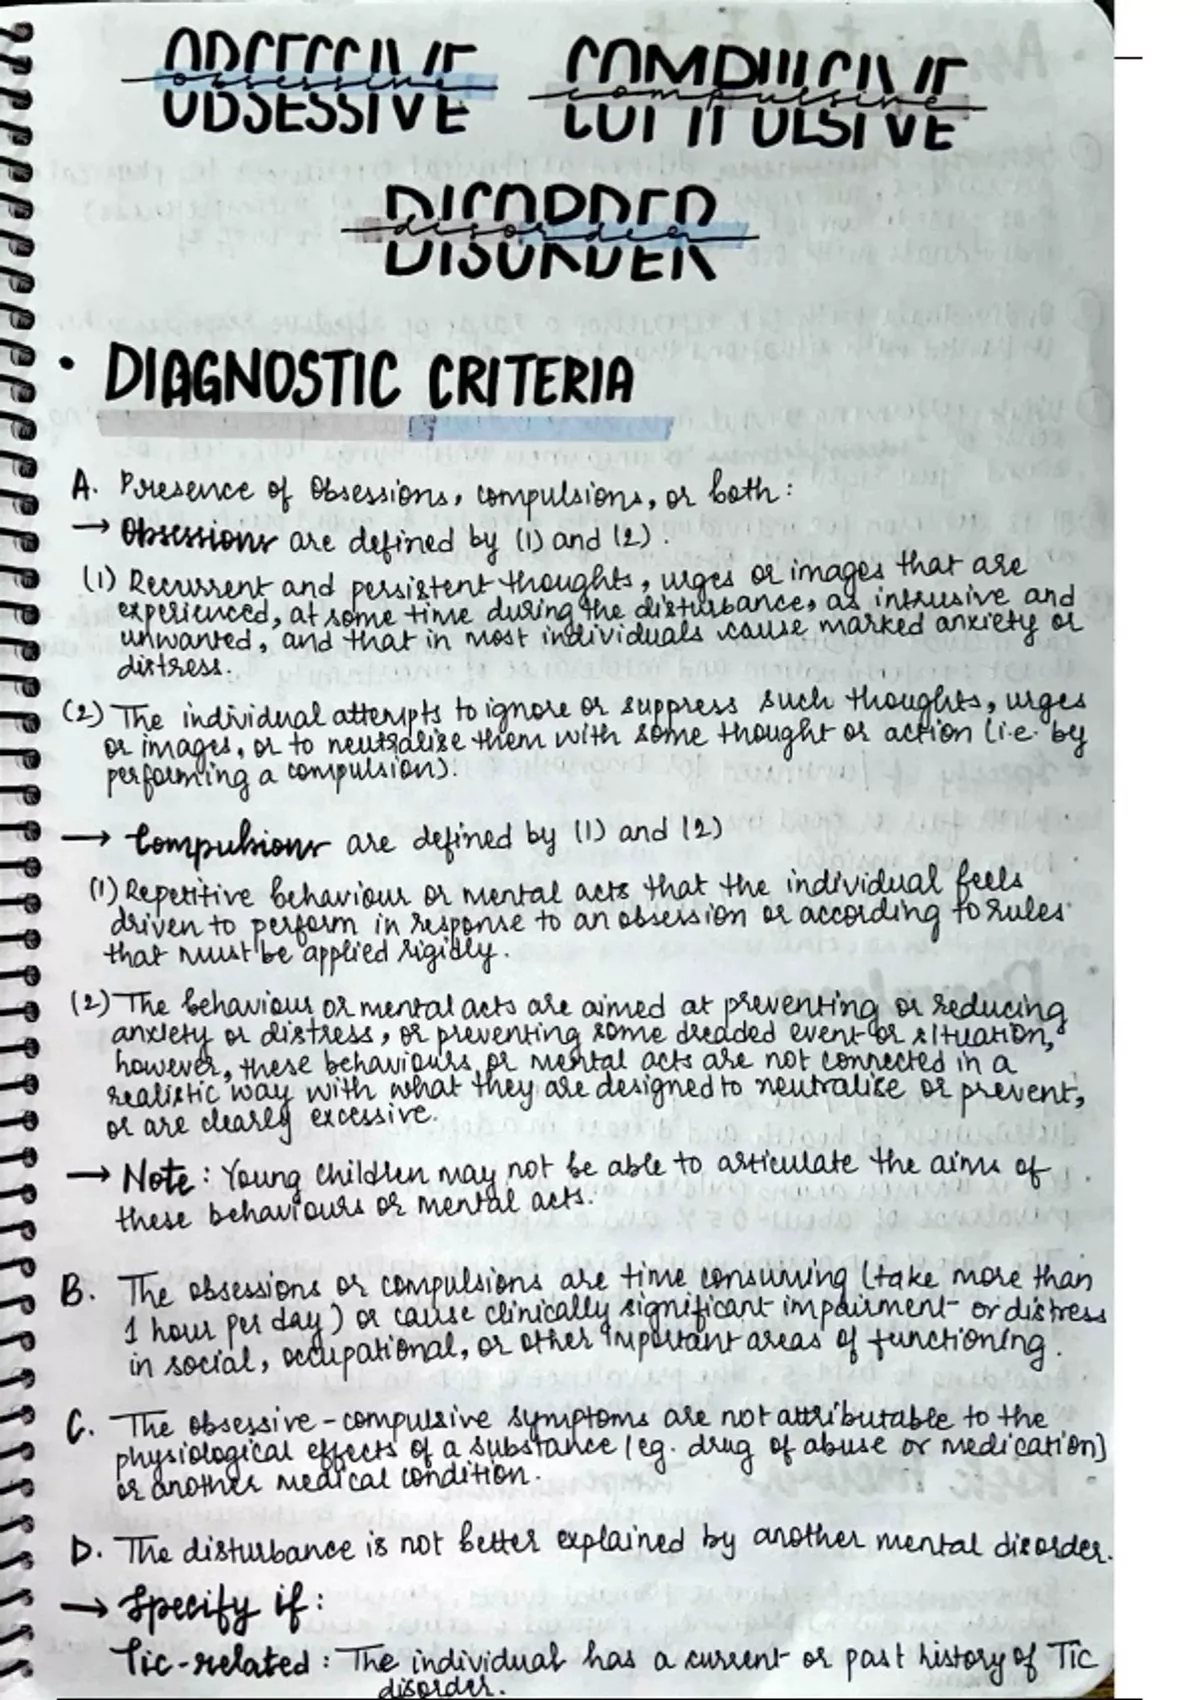 OBSESSIVE COMPULSIVE
obsessive compulsive
DISORDER
disorder
• DIAGNOSTIC CRITERIA
A. Presence of Obsessions, compulsions, or both:
→ Obsessions are defined by (1) and (2).
(1) Recurrent and persistent thoughts, urges or images that are
experienced, at some time during the disturbance, as intrusive and
unwanted, and that in most individuals cause marked anxiety or
distress.
(2) The individual attempts to ignore or suppress such thoughts, urges
or images, or to neutralise them with some thought or action (i.e. by
performing a compulsion).
→ Compulsions are defined by (1) and (2)
(1) Repetitive behaviour or mental acts that the individual feels
driven to perform in response to an obsession or according to rules
that must be applied rigidly.
(2) The behaviour or mental acts are aimed at preventing or reducing
anxiety or distress, or preventing some dreaded event or situation,
however, these behaviours or mental acts are not connected in a
realistic way with what they are designed to neutralise or prevent,
or are clearly excessive.
→ Note: Young children may not be able to articulate the aims of
these behaviours or mental acts.
B. The obsessions or compulsions are time consuming (take more than
1 hour per day) or cause clinically significant impairment or distress
in social, occupational, or other important areas of functioning.
C. The obsessive-compulsive symptoms are not attributable to the
physiological effects of a substance (eg. drug of abuse or medication)
or another medical condition.
D. The disturbance is not better explained by another mental disorder.
→ Specify if:
Tic-related: The individual has a current or past history of Tic
disorder.